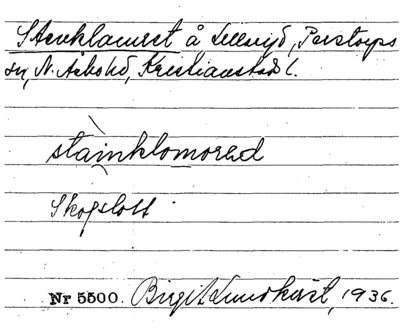 Stenklamret å Lillaryd, Perstorps
sn, N. Åsbo hd, Kristianstads l.
stainklomored
Skogslott
Nr 5500. Birgit Lundkvist, 1936.